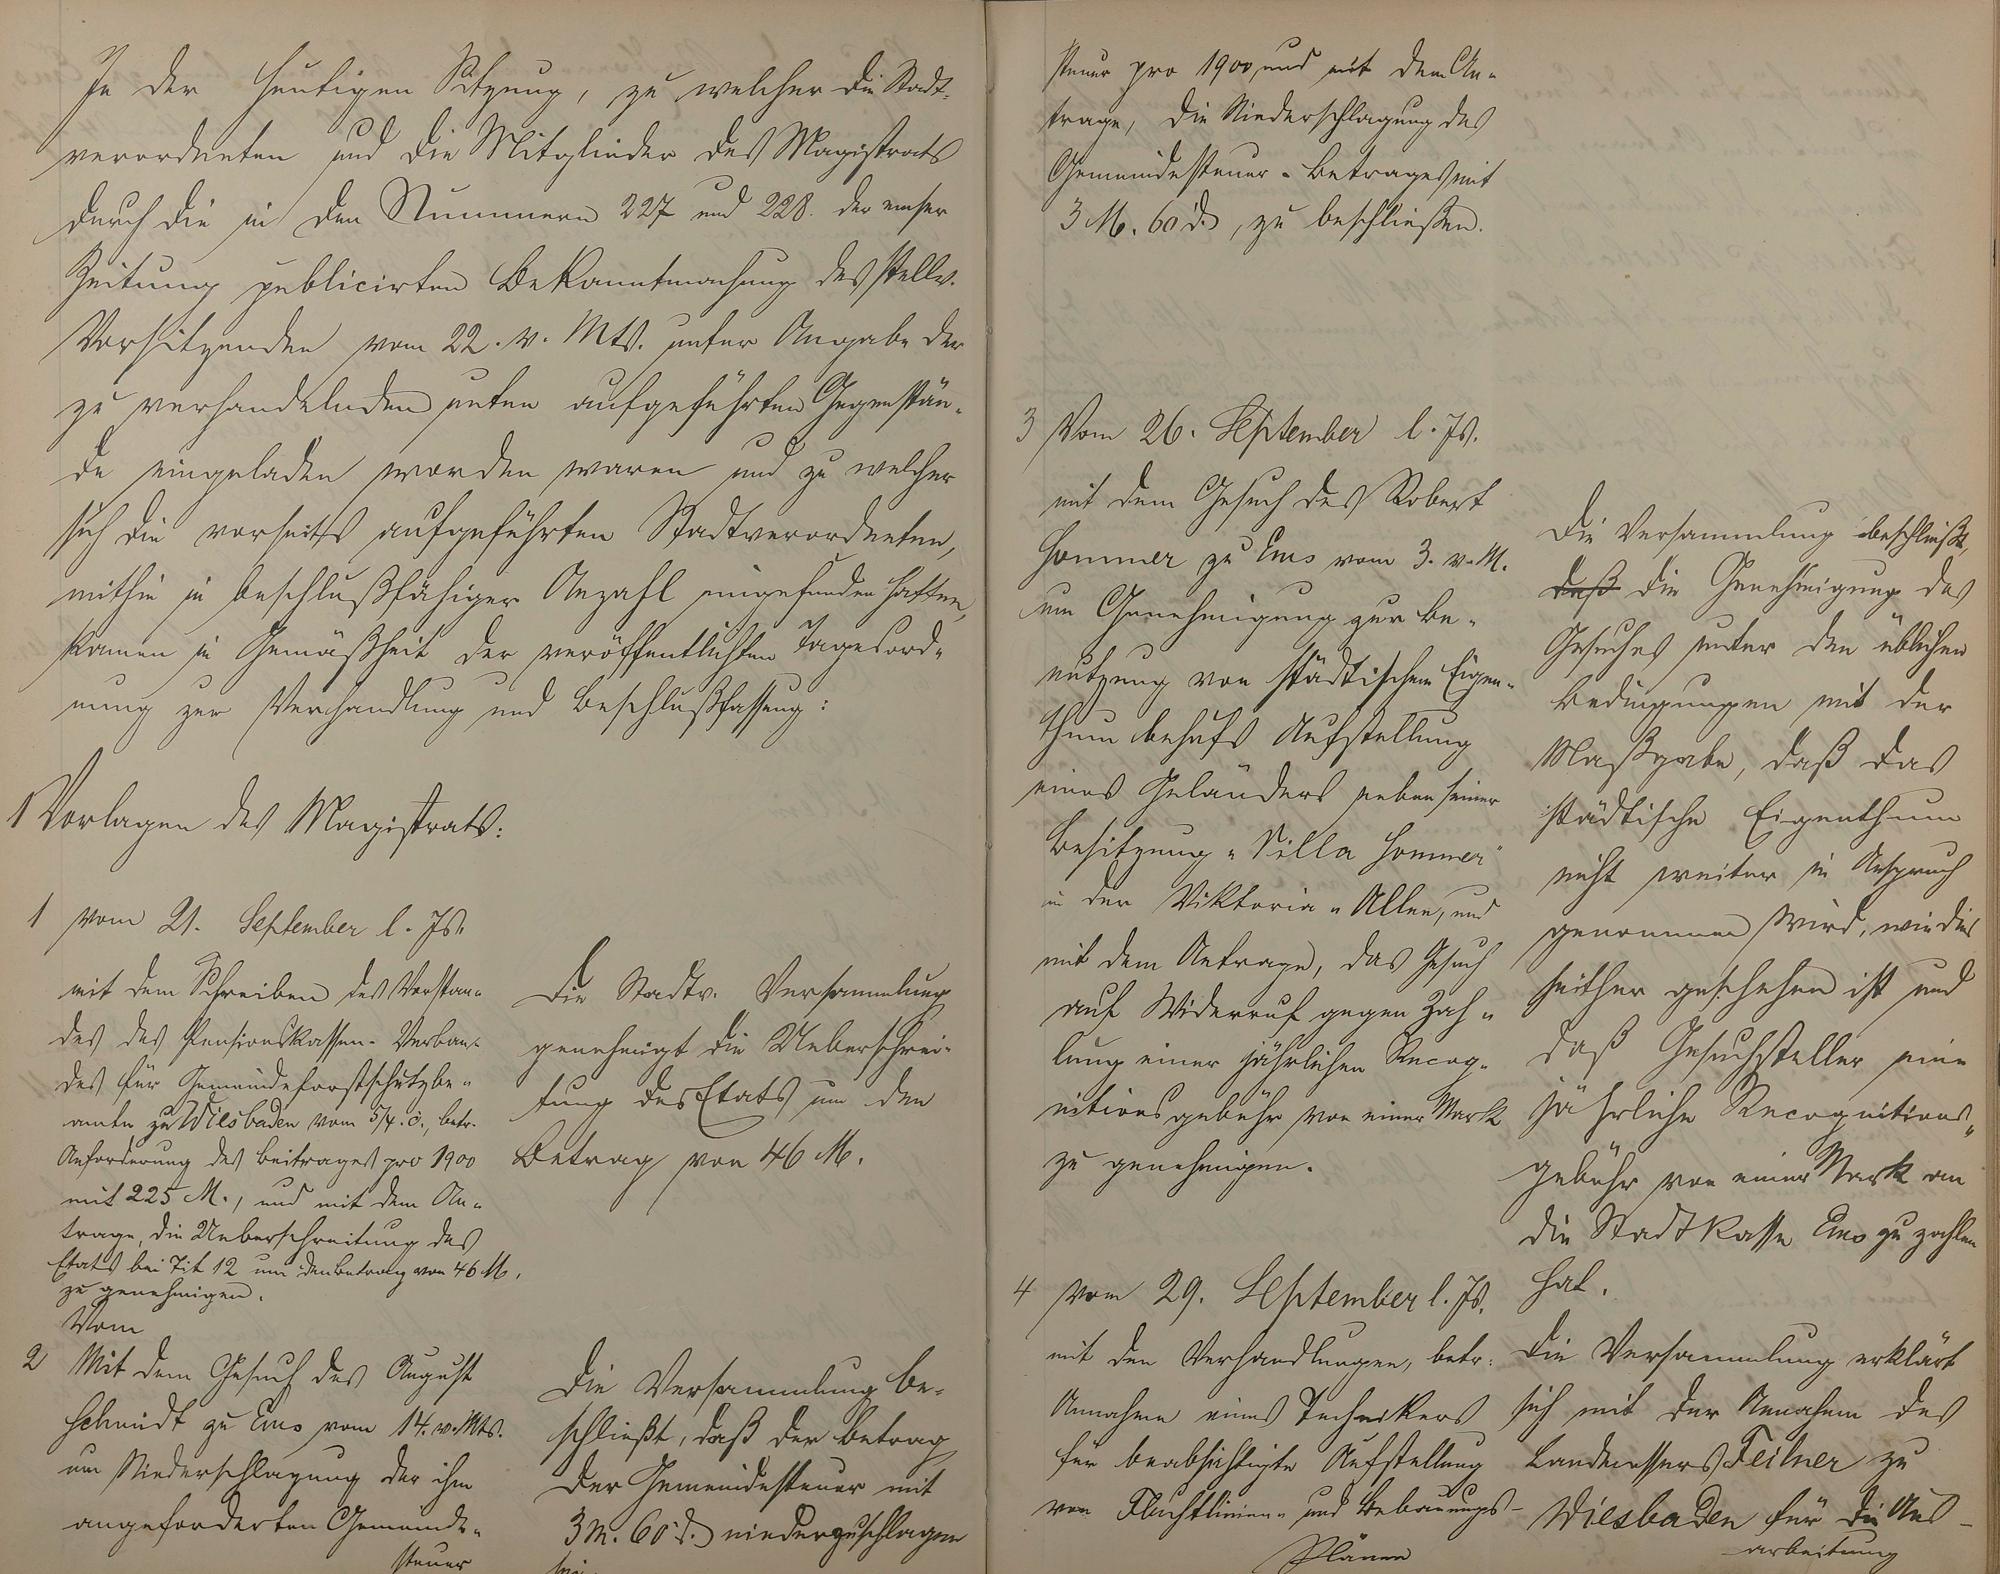 In der heutigen Sitzung, zu welcher die Stadt-
verordneten und die Mitglieder des Magistrats
durch die in den Nummern 227 und 228. der emser
Zeitung publicirten Bekanntmachung des stellv.
Vorsitzenden vom 22. v. Mts. unter Angabe der
zu verhandelnden unten aufgeführten Gegenstän-
de eingeladen worden waren und zu welcher
sich die vorseits aufgeführten Stadtverordneten,
mithin in beschlußfähiger Anzahl eingefunden hatten,
kamen in Gemäßheit der veröffentlichten Tagesord-
nung zur Verhandlung und Beschlußfassung:
1 Vorlagen des Magistrats:
1 vom 21. September l. Js.
mit dem Schreiben des Vorstan-
des des Pensionskassen-Verban-
des für Gemeindeforstschutzbe-
amte zu Wiesbaden vom 5/4. c., betr.
Anforderung des Beitrages pro 1900
mit 225 M., und mit dem An-
trage, die Ueberschreitung des
Etats bei Tit 12 um den Betrag von 46 M.
zu genehmigen.
Die Stadtv. Versammlung
genehmigt die Ueberschrei-
tung des Etats um den
Betrag von 46 M.
Vom
2 Mit dem Gesuch des August
Schmidt zu Ems vom 14. v. Mts.
um Niederschlagung der ihm
angeforderten Gemeinde-
steuer
Die Versammlung be-
schließt, daß der Betrag
der Gemeindesteuer mit
3 M. 60 d. niederzuschlagen
sei.
steuer pro 1900, und mit dem An-
trage, die Niederschlagung des
Gemeindesteuer-Betrages mit
3 M. 60 d., zu beschließen.
3 Vom 26. September l. Js.
mit dem Gesuch des Robert
Sommer zu Ems vom 3. v. M.
um Genehmigung zur Be-
nutzung von städtischem Eigen-
thum behufs Aufstellung
eines Geländers neben seiner
Besitzung "Villa Sommer"
in der Viktoria-Allee, und
mit dem Antrage, das Gesuch
auf Widerruf gegen Zah-
lung einer jährlichen Recog-
nitionsgebühr von einer Mark
zu genehmigen.
Die Versammlung beschließt,
daß die Genehmigung des
Gesuches unter den üblichen
Bedingungen mit der
Maßgabe, daß das
städtische Eigenthum
nicht weiter in Anspruch
genommen wird, wie dies
seither geschehen ist und
daß Gesuchsteller eine
jährliche Recognitions-
gebühr von einer Mark an
die Stadtkasse Ems zu zahlen
hat.
4 vom 29. September l. Js.
mit den Verhandlungen, betr.
Annahme eines Technikers
für beabsichtigte Aufstellung
von Fluchtlinien- und Bebauungs-
Plänen
Die Versammlung erklärt
sich mit der Annahme des
Landmessers Feilner zu
Wiesbaden für die Aus-
arbeitung